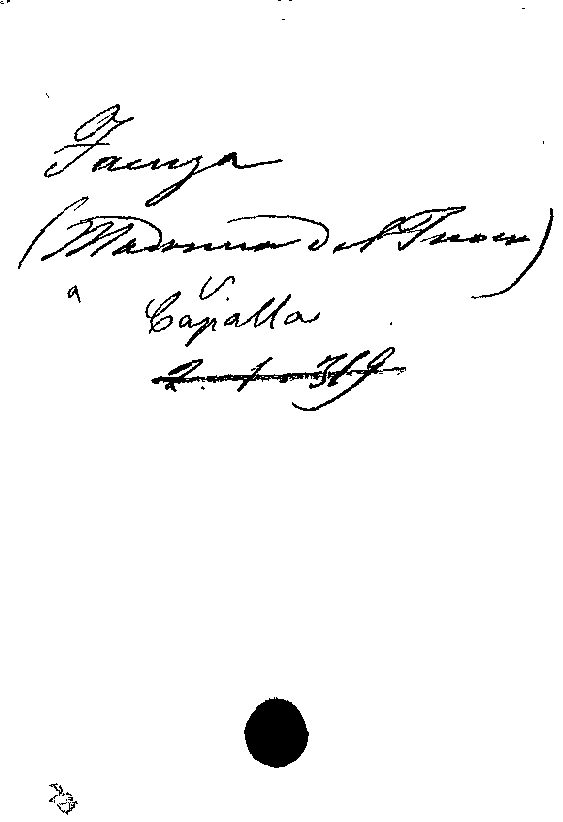 Faenza
(Madonna del Fuoco)
a V.
Capalla
2. 1. 319